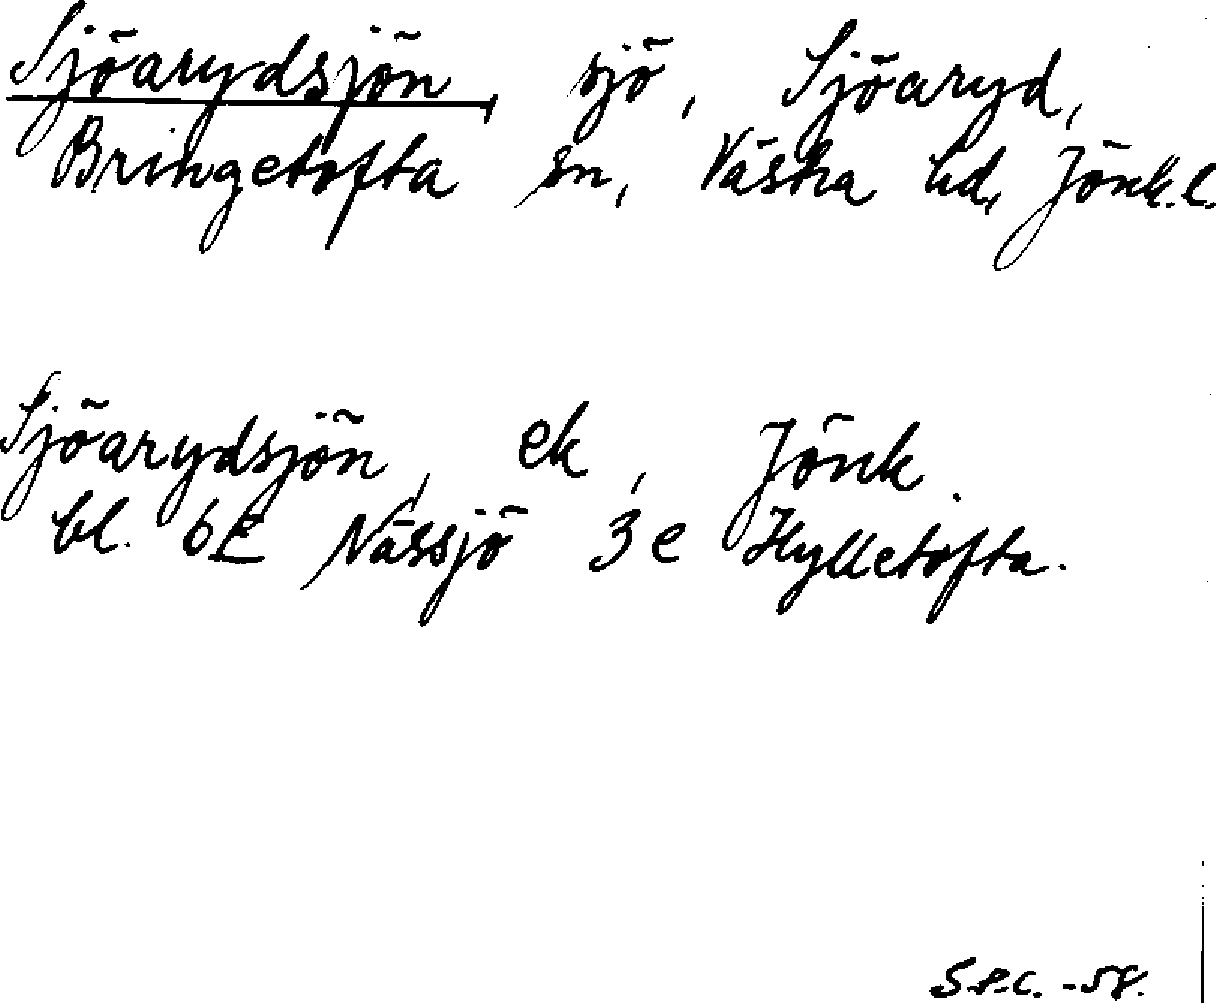 Sjöarydsjön, sjö, Sjöaryd,
Bringetofta sn, Västra hd, Jönk.l.
Sjöarydsjön, ek, Jönk.
bl. 6E Nässjö 3e Hylletofta.
S.P.C. -58.